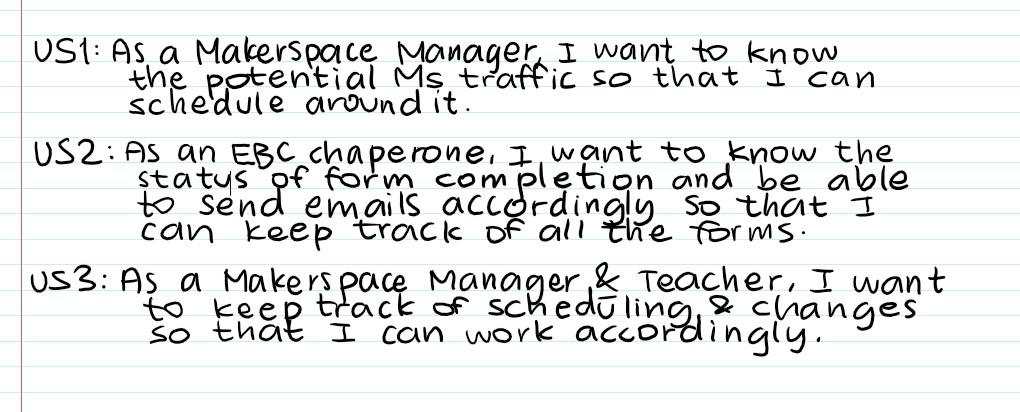 US1: As a Makerspace Manager, I want to know
the potential Ms traffic so that I can
schedule around it.
US2: As an EBC chaperone, I want to know the
status of form completion and be able
to send emails accordingly so that I
can keep track of all the forms.
US3: As a Makerspace Manager & Teacher, I want
to keep track of scheduling & changes
so that I can work accordingly.